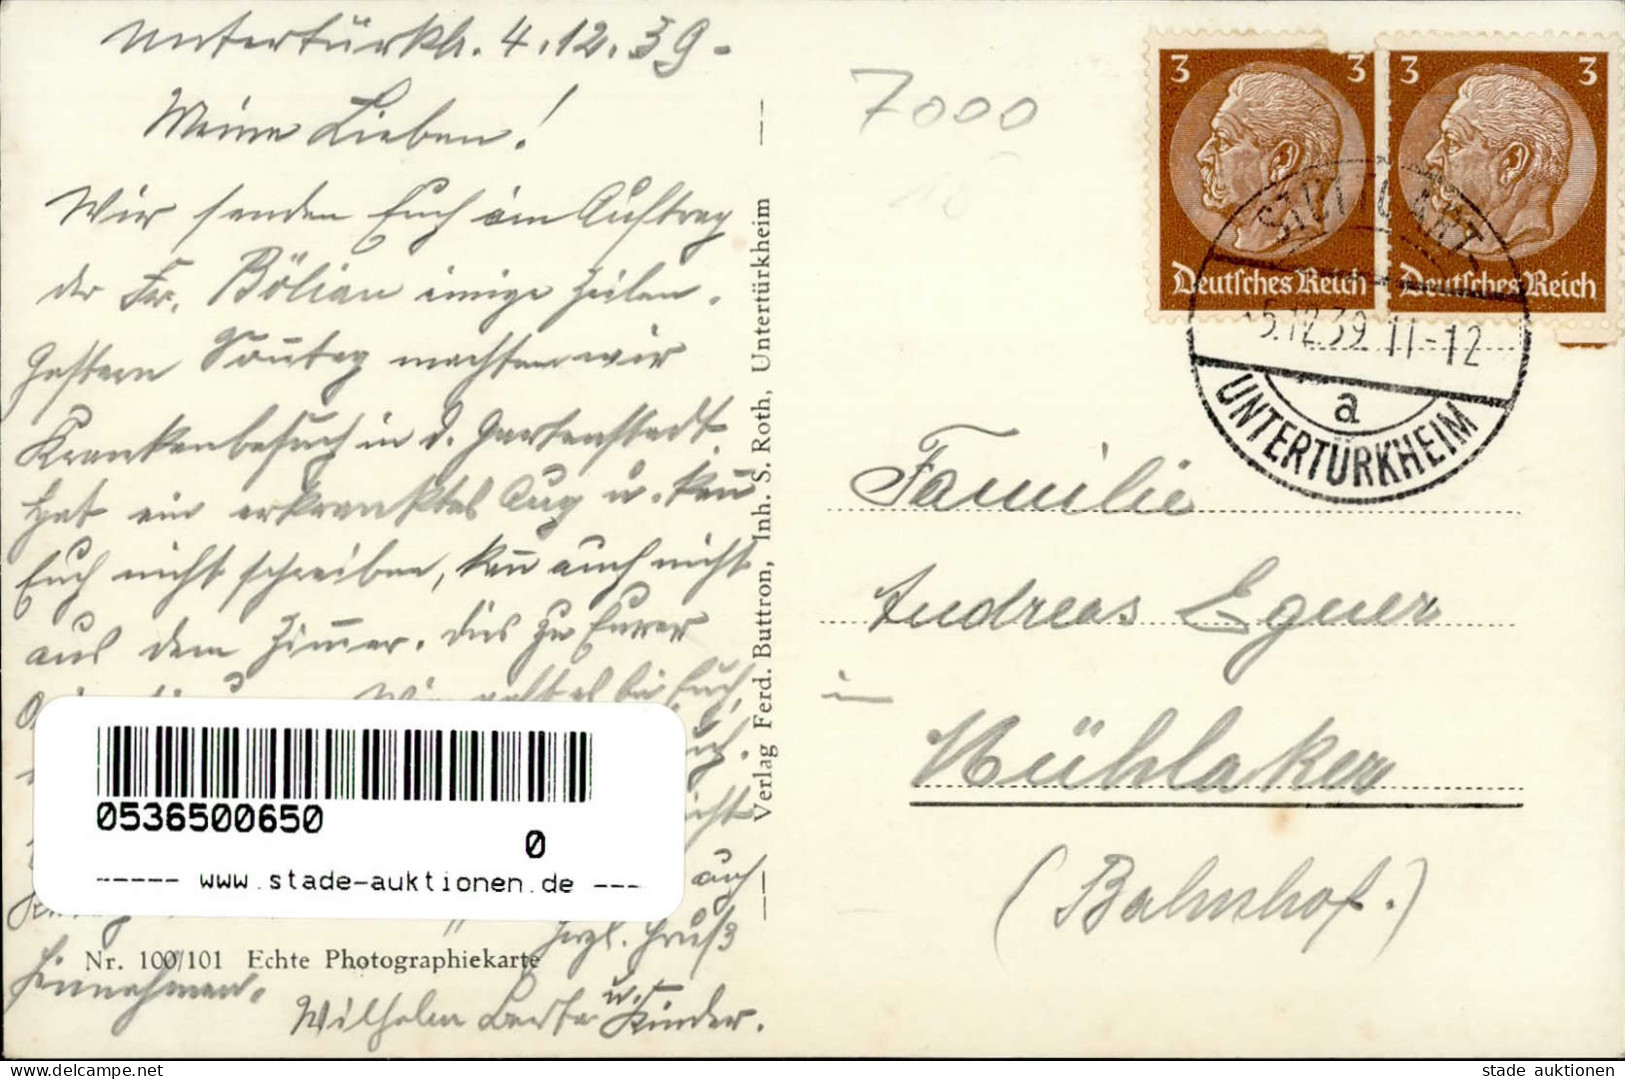 Untertürkh. 4.12.39.
Meine Lieben!
Wir senden Euch im Auftrag
der Fr. Bölian einige Zeilen.
Gestern Sonntag machten wir
Krankenbesuch in d. Gartenstadt.
Hat ein erkranktes Aug u. kann
Euch nicht schreiben, kann auch nicht
aus dem Zimmer. Dies zu Eurer
Wie geht es bei Euch,
auch
herzl. Gruß
Wilhelm Berta u. Kinder.
Nr. 100/101 Echte Photographiekarte
Verlag Ferd. Buttron, Inh. S. Roth, Untertürkheim
7000
3 3
Deutsches Reich
3 3
Deutsches Reich
STUTTGART
-5.12.39 11-12
a
UNTERTÜRKHEIM
Familie
Andreas Egner
in
Mühlaker
(Bahnhof.)
0536500650
0
----- www.stade-auktionen.de ---
delcampe.net
stade auktionen